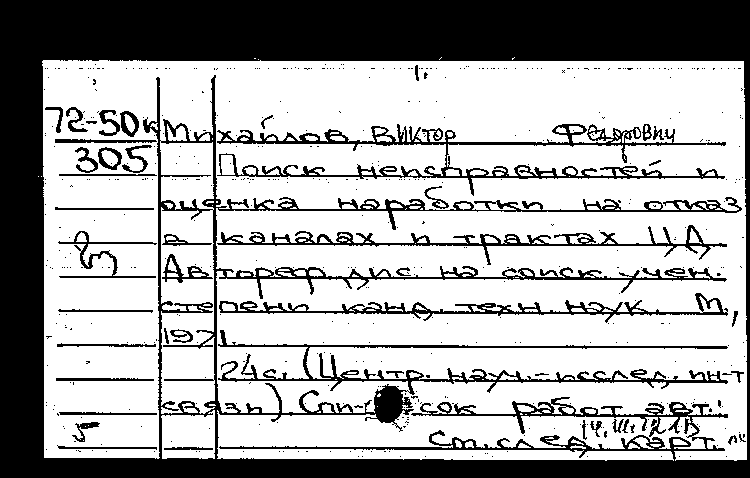 1.
72-50к Михайлов, Виктор Федорович
305 Поиск неисправностей и
оценка наработки на отказ
в каналах и трактах ЦД
Автореф. дис. на соиск. учен.
степени канд. техн. наук. М.,
1971.
24с. (Центр. науч.-исслед. ин-т
связи). Спи- сок работ авт.:
5
См. след. карт.